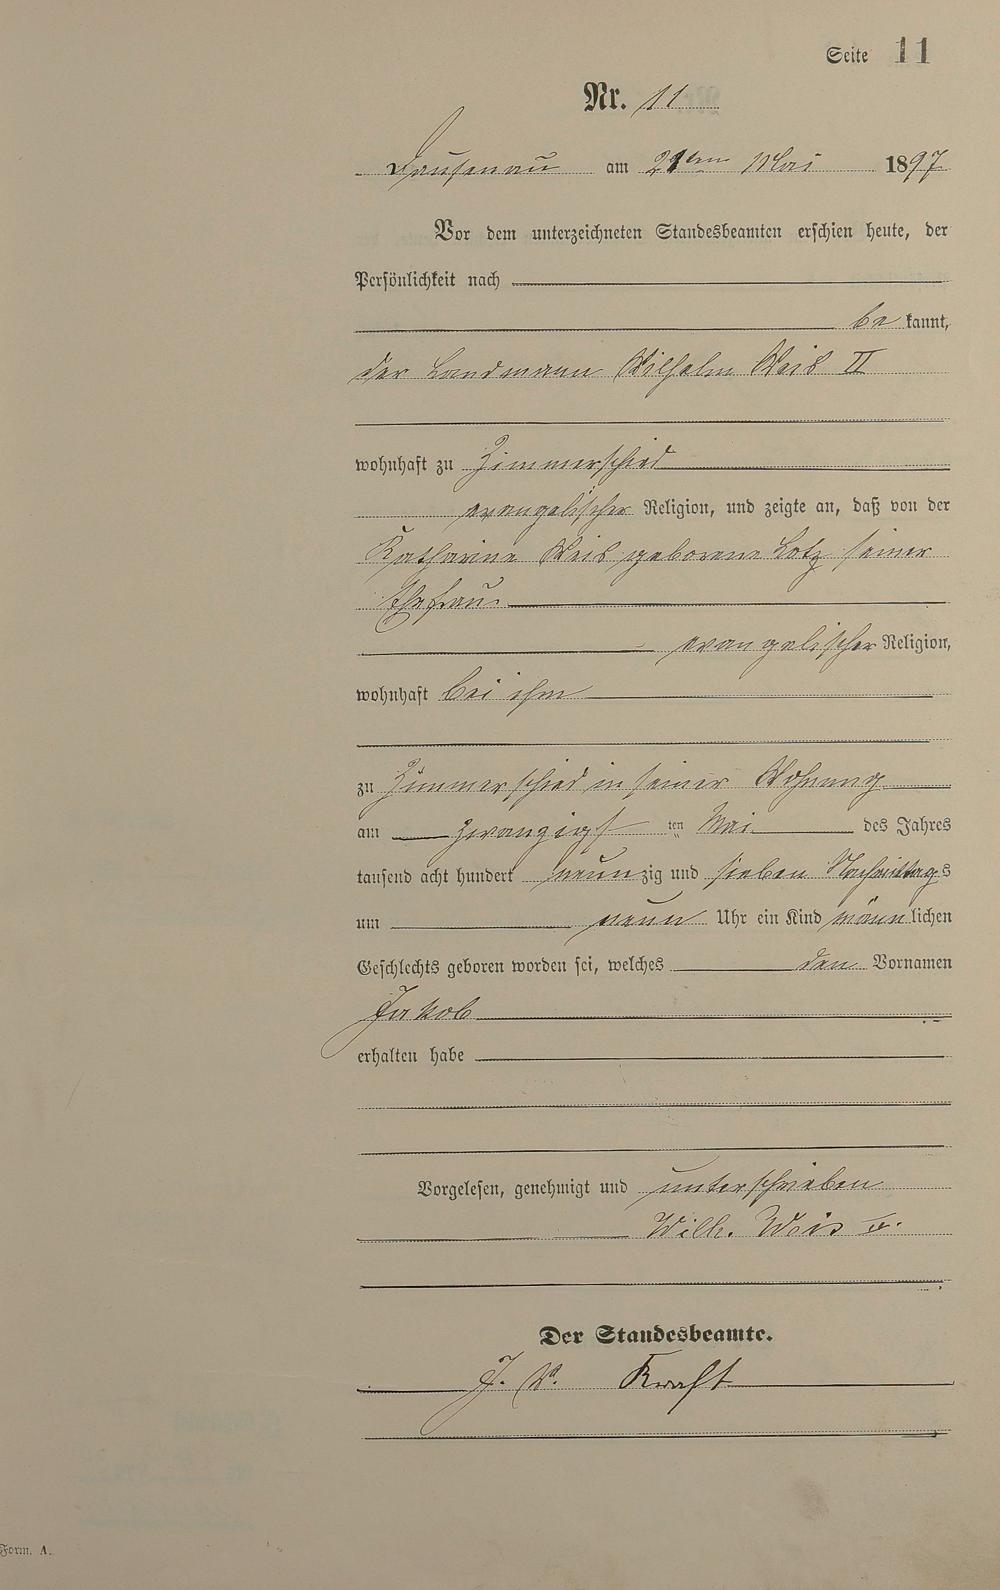 Seite 11
Nr. 11
Dausenau am 21ten Mai 1897
Vor dem unterzeichneten Standesbeamten erschien heute, der
Persönlichkeit nach
be kannt,
der Landmann Wilhelm Weis II
wohnhaft zu Zimmerschied
evangelischer Religion, und zeigte an, daß von der
Katharine Weis geborene Lotz seiner
Ehefrau
evangelischer Religion,
wohnhaft bei ihm
zu Zimmerschied in seiner Wohnung
am zwanzigs ten Mai des Jahres
tausend acht hundert neunzig und sieben Nachmittags
um neun Uhr ein Kind männlichen
Geschlechts geboren worden sei, welches den Vornamen
Jakob
erhalten habe
Vorgelesen, genehmigt und unterschrieben
Wilh. Weis II.
Der Standesbeamte.
J. V. Kraft
Form. A.